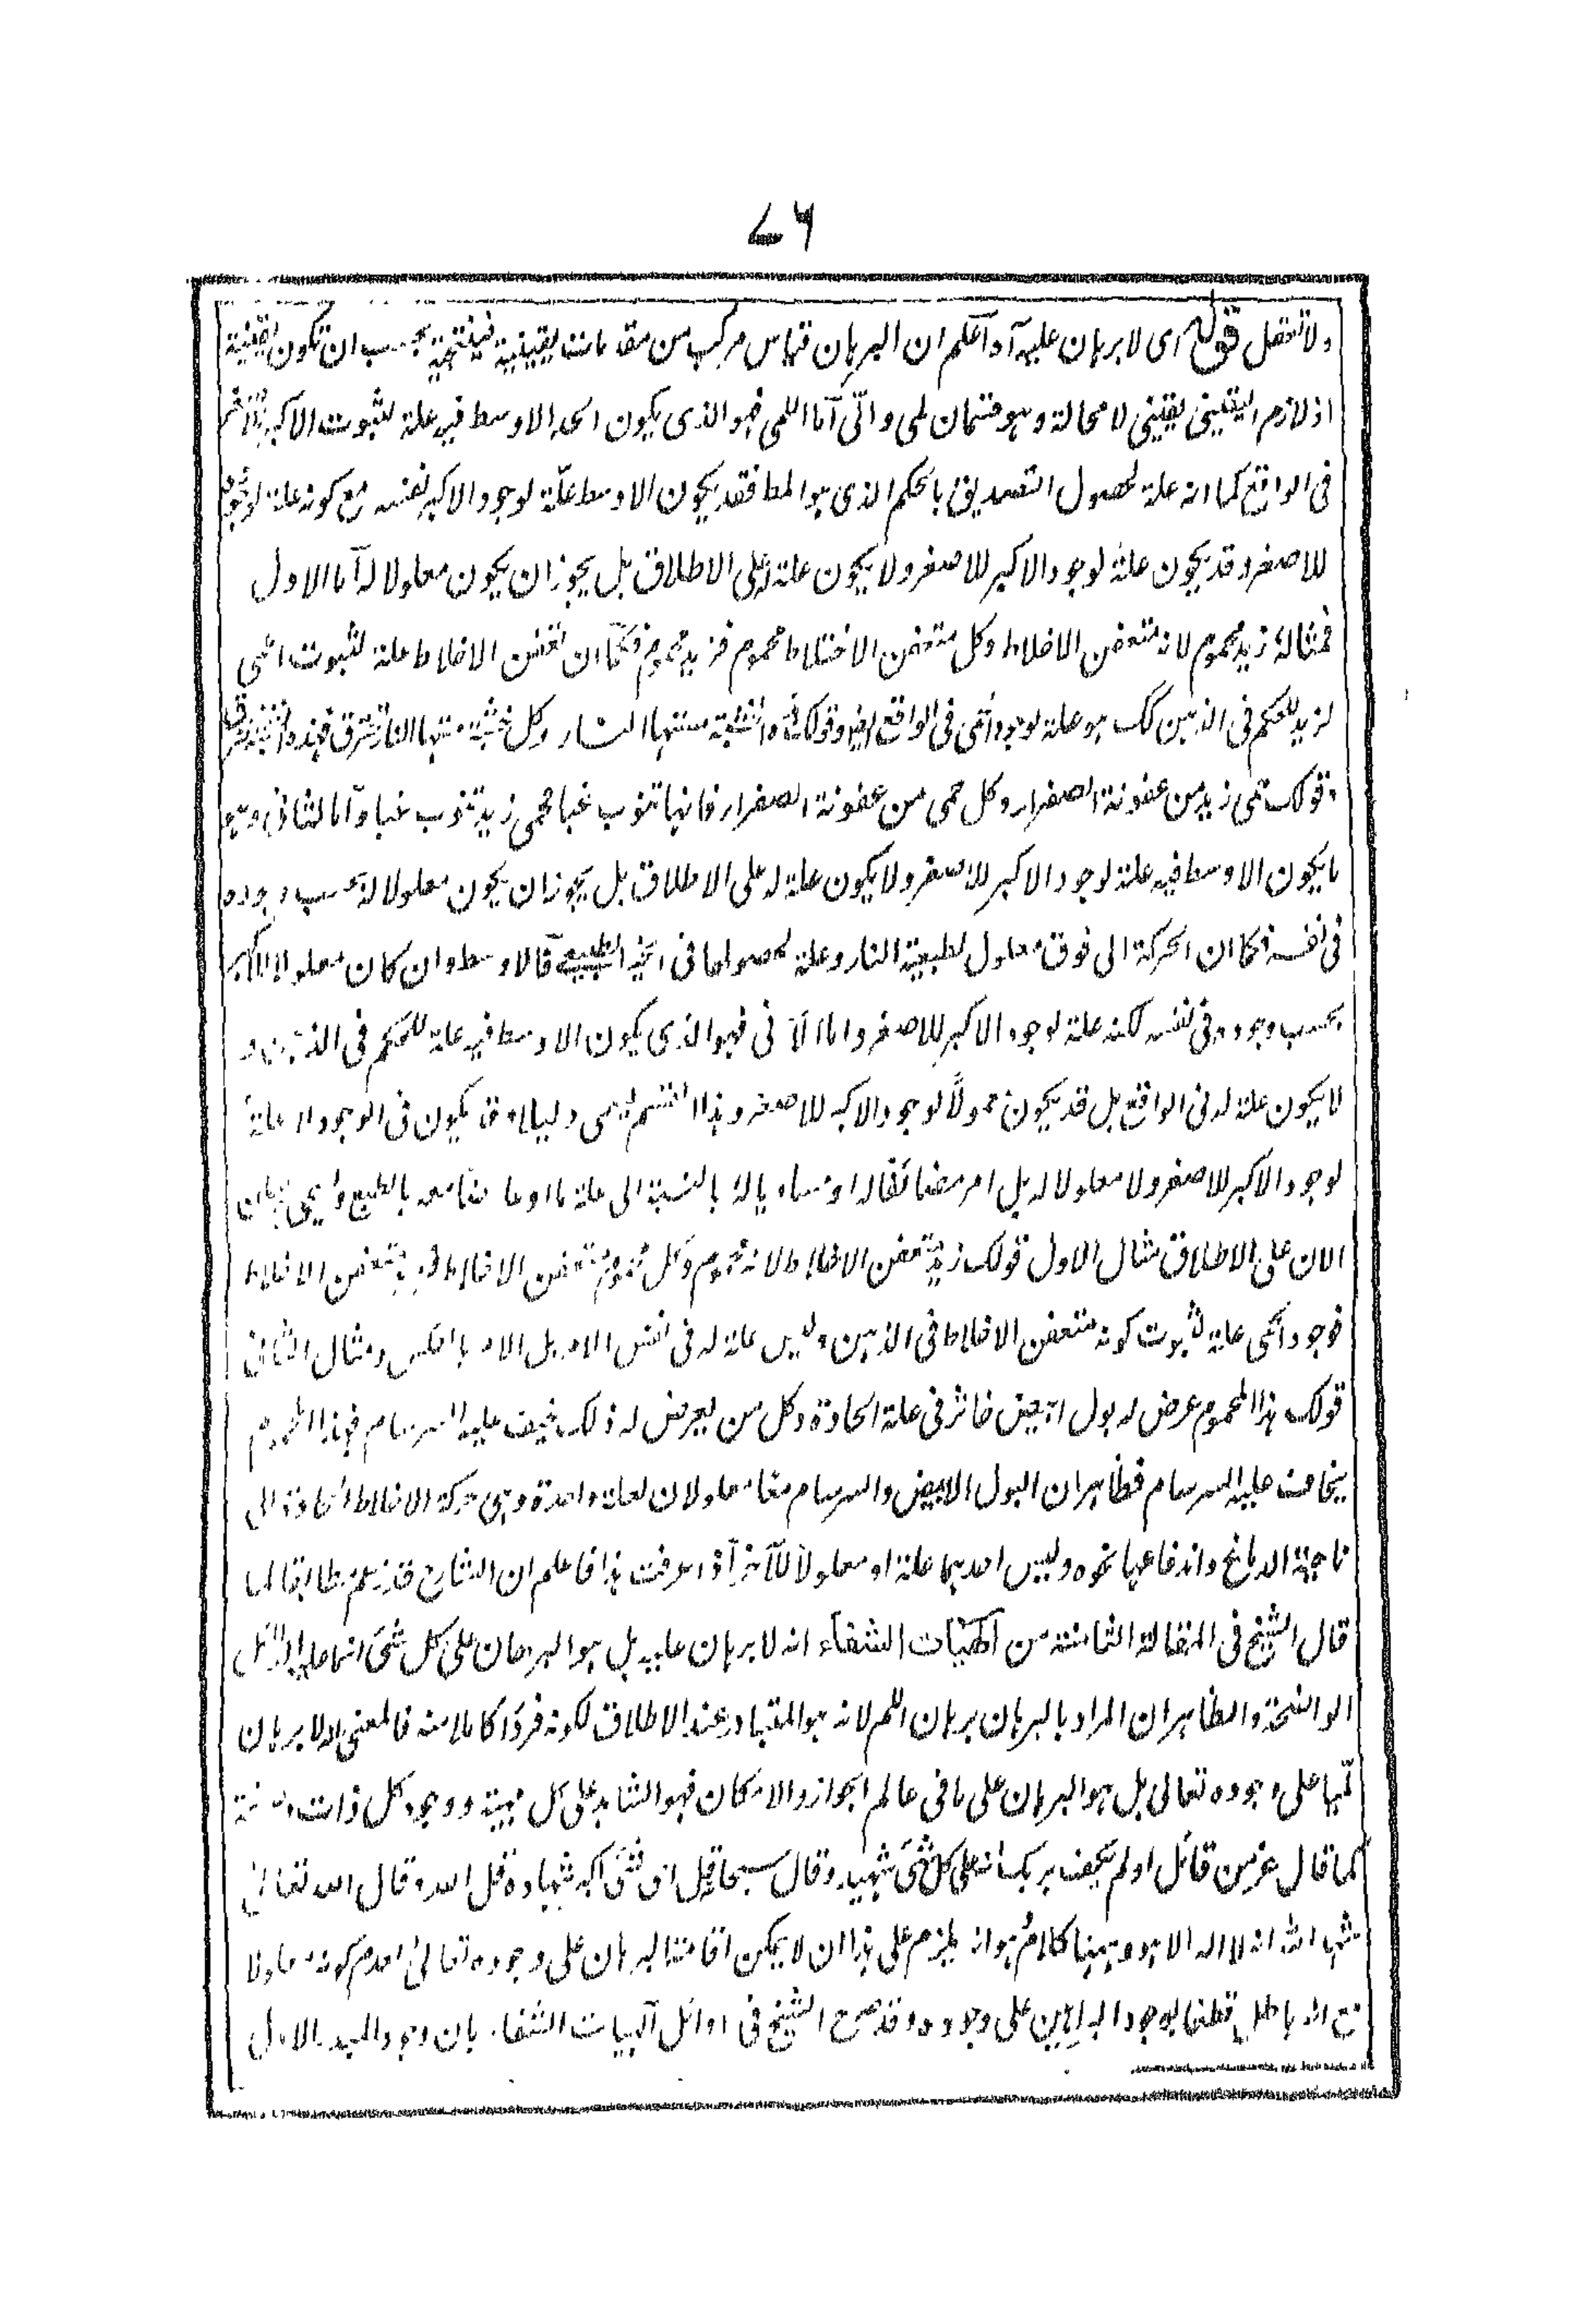 ٧٦
ولا تغفل قوله اى لا برهان عليه آه اعلم ان البرهان قياس مركب من مقدمات يقينية فنتيجته يجب ان تكون يقينية
اذ لازم اليقينى يقينى لا محالة وهو قسمان لمى وانى اما اللمى فهو الذى يكون الحد الاوسط فيه علة لثبوت الاكبر للاصغر
فى الواقع كما انه علة لحصول التصديق بالحكم الذى هو المط فقد يكون الاوسط علة لوجود الاكبر لنفسه مع كونه علة لوجوده
للاصغر وقد يكون علة لوجود الاكبر للاصغر ولا يكون علة له على الاطلاق بل يجوز ان يكون معلولا له اما الاول
فمثاله زيد محموم لانه متعفن الاخلاط وكل متعفن الاخلاط محموم فزيد محموم فكما ان تعفن الاخلاط علة لثبوت الحمى
لزيد للحكم فى الذهن كك هو علة لوجود الحمى فى الواقع ايضا وقولك هذه الخشبة مستها النار وكل خشبة مستها النار تحترق فهذه الخشبة تحترق
وقولك حمى زيد من عفونة الصفراء وكل حمى من عفونة الصفراء فانها تنوب غبا فحمى زيد تنوب غبا واما الثانى وهو
ما يكون الاوسط فيه علة لوجود الاكبر للاصغر ولا يكون علة له على الاطلاق بل يجوز ان يكون معلولا له بحسب وجوده
فى نفسه فكما ان الحركة الى فوق معلول لطبيعة النار وعلة لحصولها فى الحيز الطبيعى فالاوسط وان كان معلولا للاكبر
بحسب وجوده فى نفسه لكنه علة لوجود الاكبر للاصغر واما الانى فهو الذى يكون الاوسط فيه علة للحكم فى الذهن و
لا يكون علة له فى الواقع بل قد يكون معلولا لوجود الاكبر للاصغر وهذا القسم يسمى دليلا وقد يكون فى الوجود لا علة
لوجود الاكبر للاصغر ولا معلولا له بل امر مضائفا له او مساويا له بالنسبة الى علة ما او عارضا معه بالطبع ويسمى برهان
الان على الاطلاق مثال الاول قولك زيد متعفن الاخلاط لانه محموم وكل محموم متعفن الاخلاط فزيد متعفن الاخلاط
فوجود الحمى علة لثبوت كونه متعفن الاخلاط فى الذهن وليس علة له فى نفس الامر بل الامر بالعكس ومثال الثانى
قولك هذا المحموم عرض له بول ابيض خاثر فى علة الحادة وكل من يعرض له ذلك يخيف عليه السرسام فهذا المحموم
يخاف عليه السرسام فظاهر ان البول الابيض والسرسام معا معلولان لعلة واحدة وهى حركة الاخلاط الحادة الى
ناحية الدماغ واندفاعها نحوه وليس احدهما علة او معلولا للآخر اذا عرفت هذا فاعلم ان الشارح قد زعم مطابقا لما
قال الشيخ فى المقالة الثامنة من الهيات الشفاء انه لا برهان عليه بل هو البرهان على كل شى انما عليه الدلائل
الواضحة والظاهر ان المراد بالبرهان برهان اللم لانه هو المتبادر عند الاطلاق لكونه فردا كاملا منه فالمعنى انه لا برهان
لميا على وجوده تعالى بل هو البرهان على ما فى عالم الجواز والامكان فهو الشاهد على كل مهية ووجود كل ذات وصفة
كما قال عز من قائل اولم يكف بربك انه على كل شى شهيد وقال سبحانه قل اى شى اكبر شهادة قل الله وقال الله تعالى
شهد الله انه لا اله الا هو وههنا كلام هو انه يلزم على هذا ان لا يمكن اقامة البرهان على وجوده تعالى لعدم كونه معلولا
مع انه باطل قطعا لوجود البراهين على وجوده وقد صرح الشيخ فى اوائل الهيات الشفاء بان وجود المبدء الاول